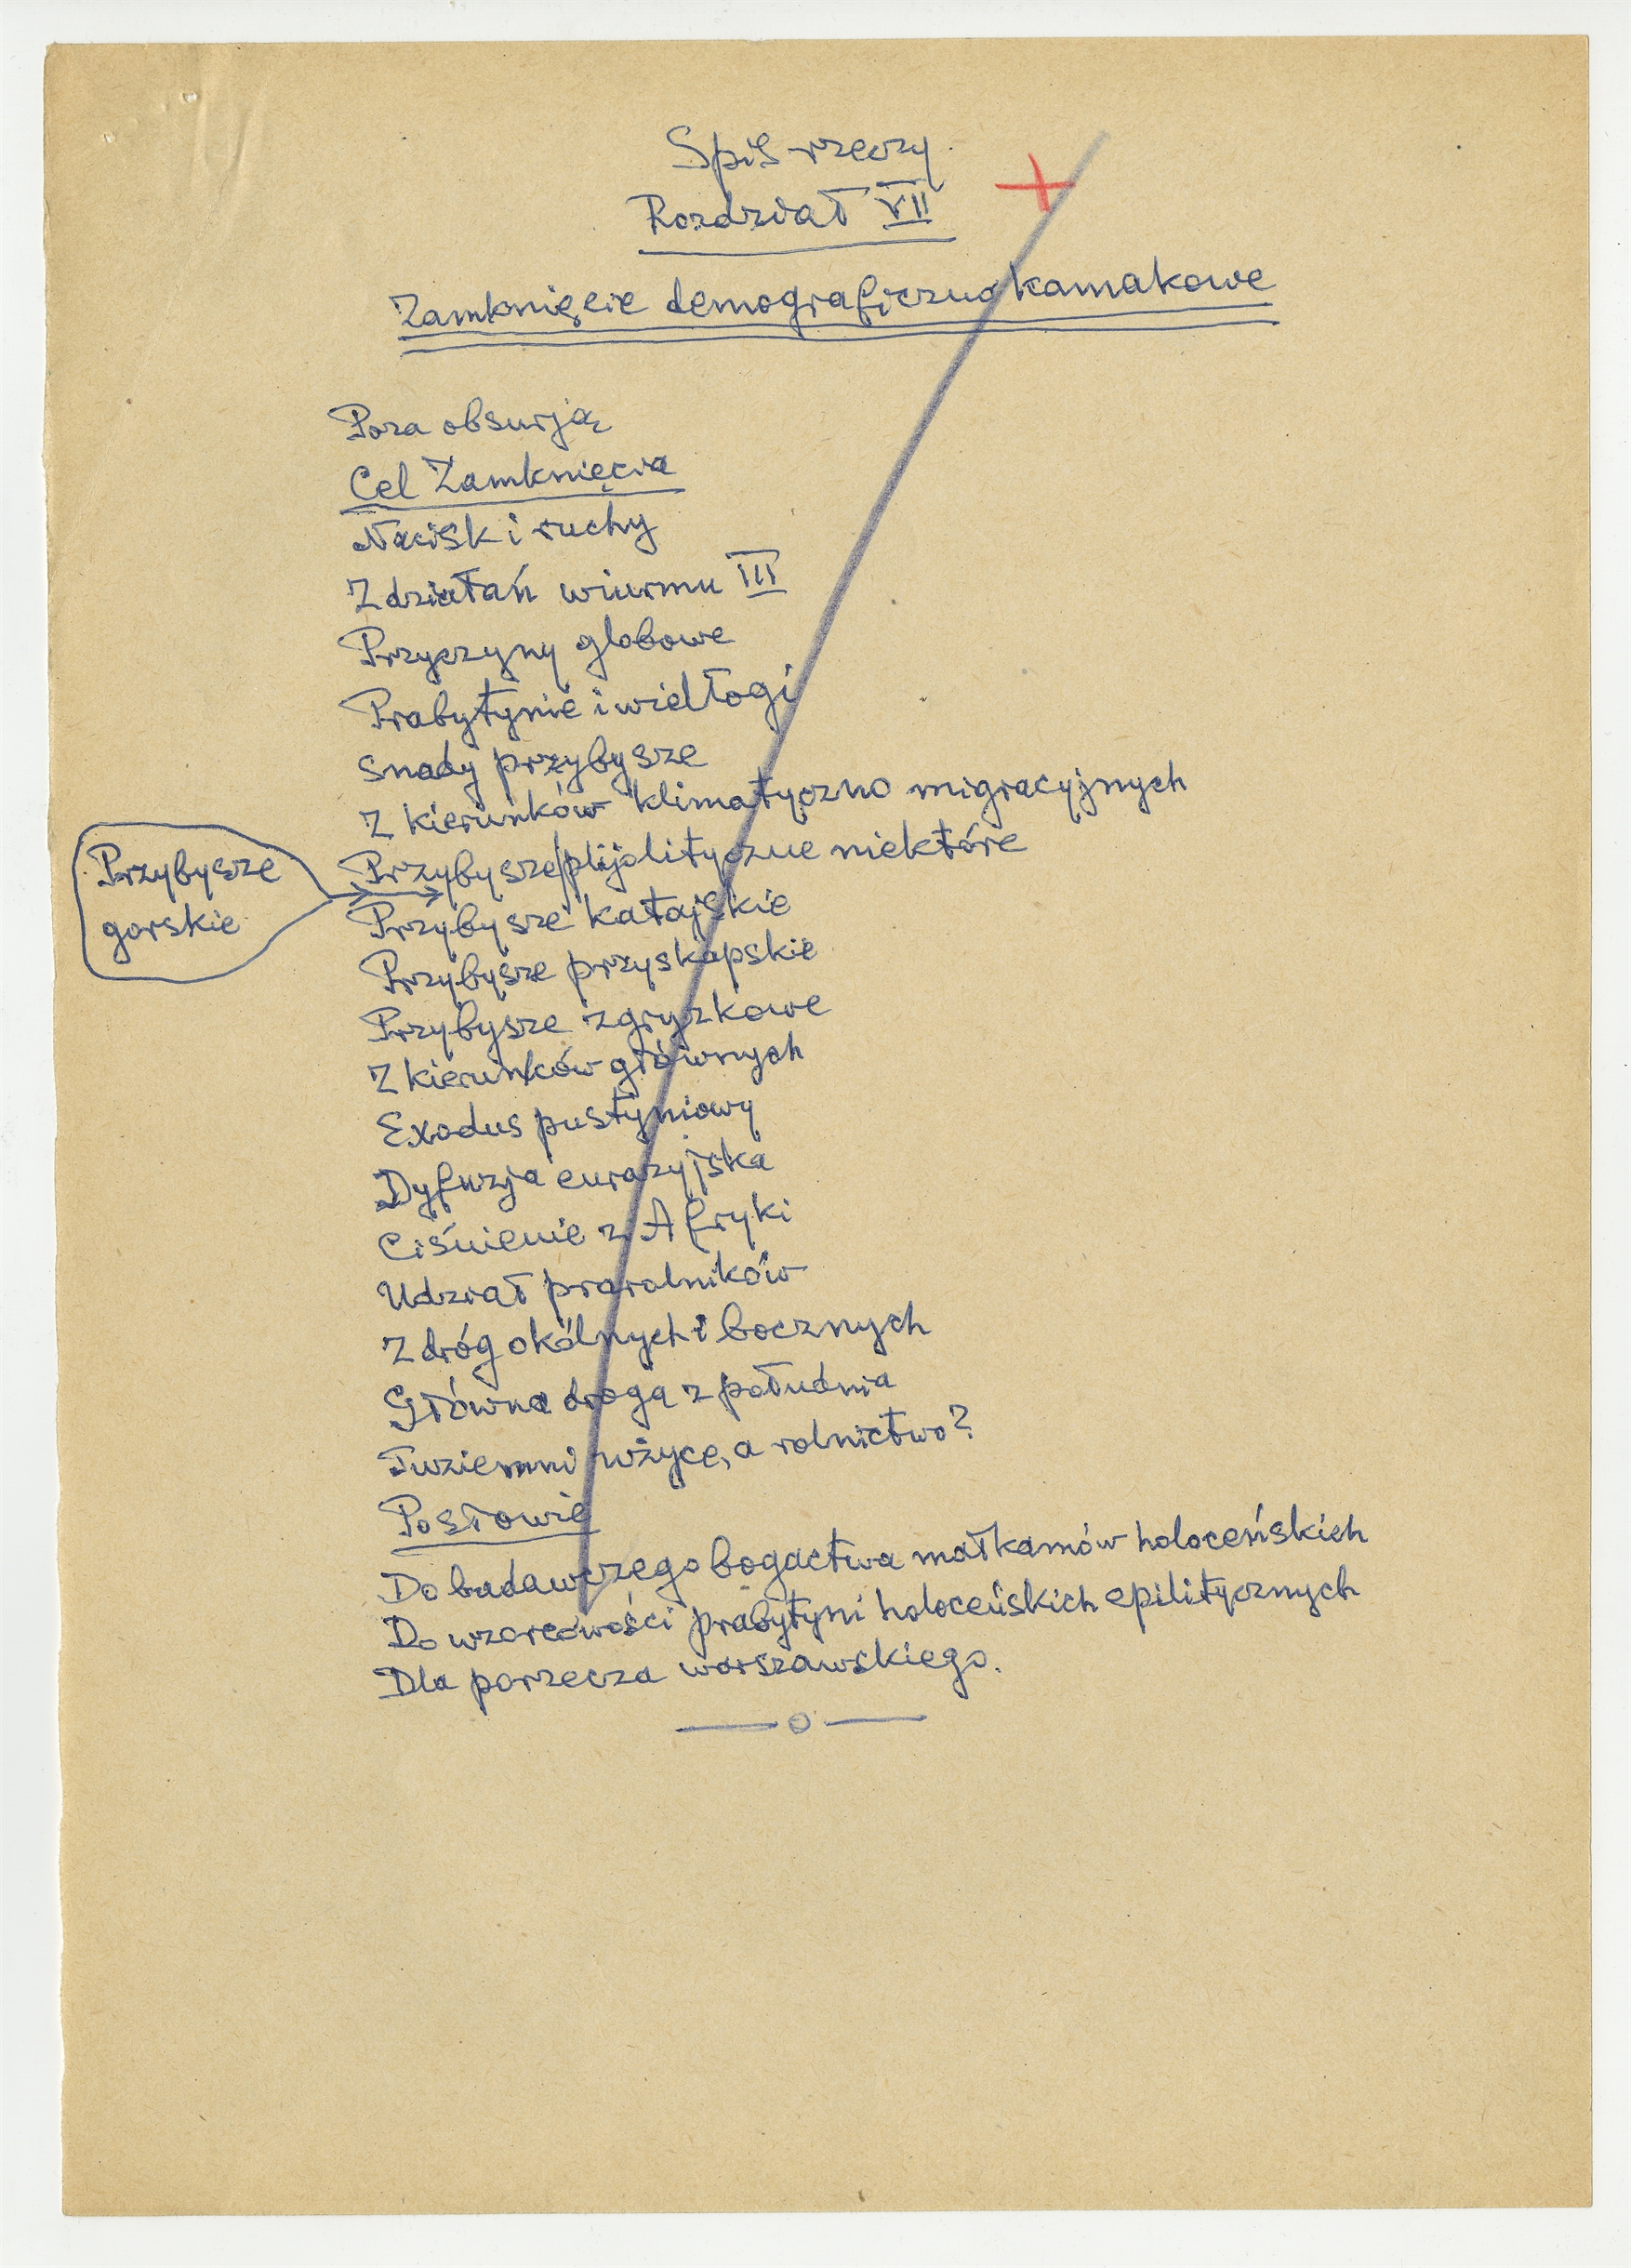 Spis rzeczy
Rozdział VII
Zamknięcie demograficzno kamakowe
Poza obsurją
Cel Zamknięcia
Nacisk i ruchy
Z działań wiurmu III
Przyczyny globowe
Prabytynie i wiedłogi
Snady przybysze
Z kierunków klimatyczno migracyjnych
Przybysze plijolityczne niektóre
Przybysze gorskie
Przybysze katajskie
Przybysze przyskapskie
Przybysze zgryzkowe
Z kierunków głównych
Exodus pustyniowy
Dyfuzja eurazyjska
Ciśnienie z Afryki
Udział prarolników
Z dróg okólnych i bocznych
Główna drogą z południa
Tuziemni wżyce, a rolnictwo?
Posłowie
Do badawczego bogactwa małkamów holoceńskich
Do wzorcowości prabytyni holoceńskich epilitycznych
Dla porzecza warszawskiego.